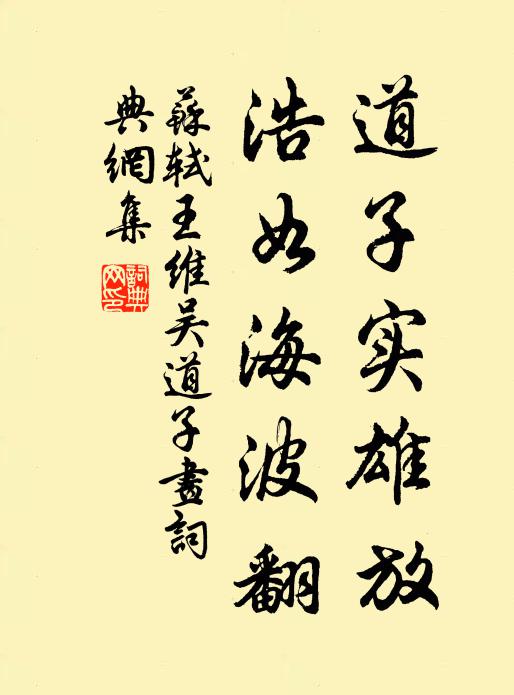 道子实雄放
浩如海波翻
蘇軾王維吴道子畫詞
典網集
詞典
网印